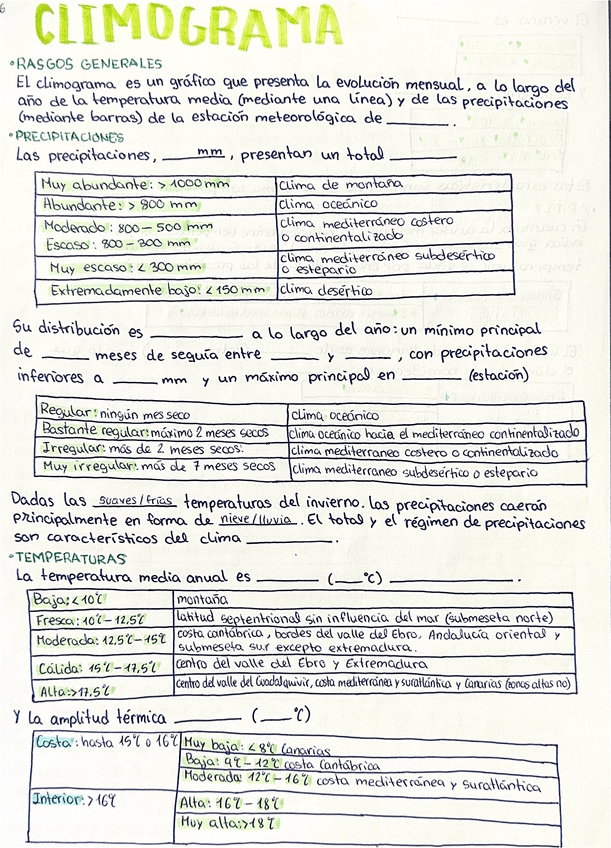 6
CLIMOGRAMA
•RASGOS GENERALES
El climograma es un gráfico que presenta la evolución mensual, a lo largo del
año de la temperatura media (mediante una línea) y de las precipitaciones
(mediante barras) de la estación meteorológica de ______.
•PRECIPITACIONES
Las precipitaciones, ___mm__, presentan un total ______.
Muy abundante: > 1000 mm | clima de montaña
Abundante: > 800 mm | clima oceánico
Moderado: 800 – 500 mm | clima mediterráneo costero
Escaso: 800 – 300 mm | o continentalizado
Muy escaso: < 300 mm | clima mediterráneo subdesértico
o estepario
Extremadamente bajo: < 150 mm | clima desértico
Su distribución es ________ a lo largo del año: un mínimo principal
de ____ meses de sequía entre ____ y ____, con precipitaciones
inferiores a ____ mm y un máximo principal en ____ (estación)
Regular: ningún mes seco | clima oceánico
Bastante regular: máximo 2 meses secos | clima oceánico hacia el mediterráneo continentalizado
Irregular: más de 2 meses secos. | clima mediterraneo costero o continentalizado
Muy irregular: más de 7 meses secos | clima mediterraneo subdesértico o estepario
Dadas las suaves/frías temperaturas del invierno. las precipitaciones caerán
principalmente en forma de nieve/lluvia. El total y el régimen de precipitaciones
son característicos del clima ________.
•TEMPERATURAS
La temperatura media anual es ______ (___ºC) ____________.
Baja: < 10ºC | montaña
Fresca: 10ºC – 12,5ºC | latitud septentrional sin influencia del mar (submeseta norte)
Moderada: 12,5ºC – 15ºC | costa cantábrica, bordes del valle del Ebro, Andalucía oriental y
submeseta sur excepto extremadura.
Cálida: 15ºC – 17,5ºC | centro del valle del Ebro y Extremadura
Alta: > 17,5ºC | centro del valle del Guadalquivir, costa mediterránea y suratlántica y Canarias (zonas altas no)
Y la amplitud térmica ________ (___ºC)
Costa: hasta 15ºC o 16ºC | Muy baja: < 8ºC Canarias
Baja: 9ºC – 12ºC costa Cantábrica
Moderada: 12ºC – 16ºC costa mediterránea y suratlántica
Interior: > 16ºC | Alta: 16ºC – 18ºC
Muy alta: > 18ºC